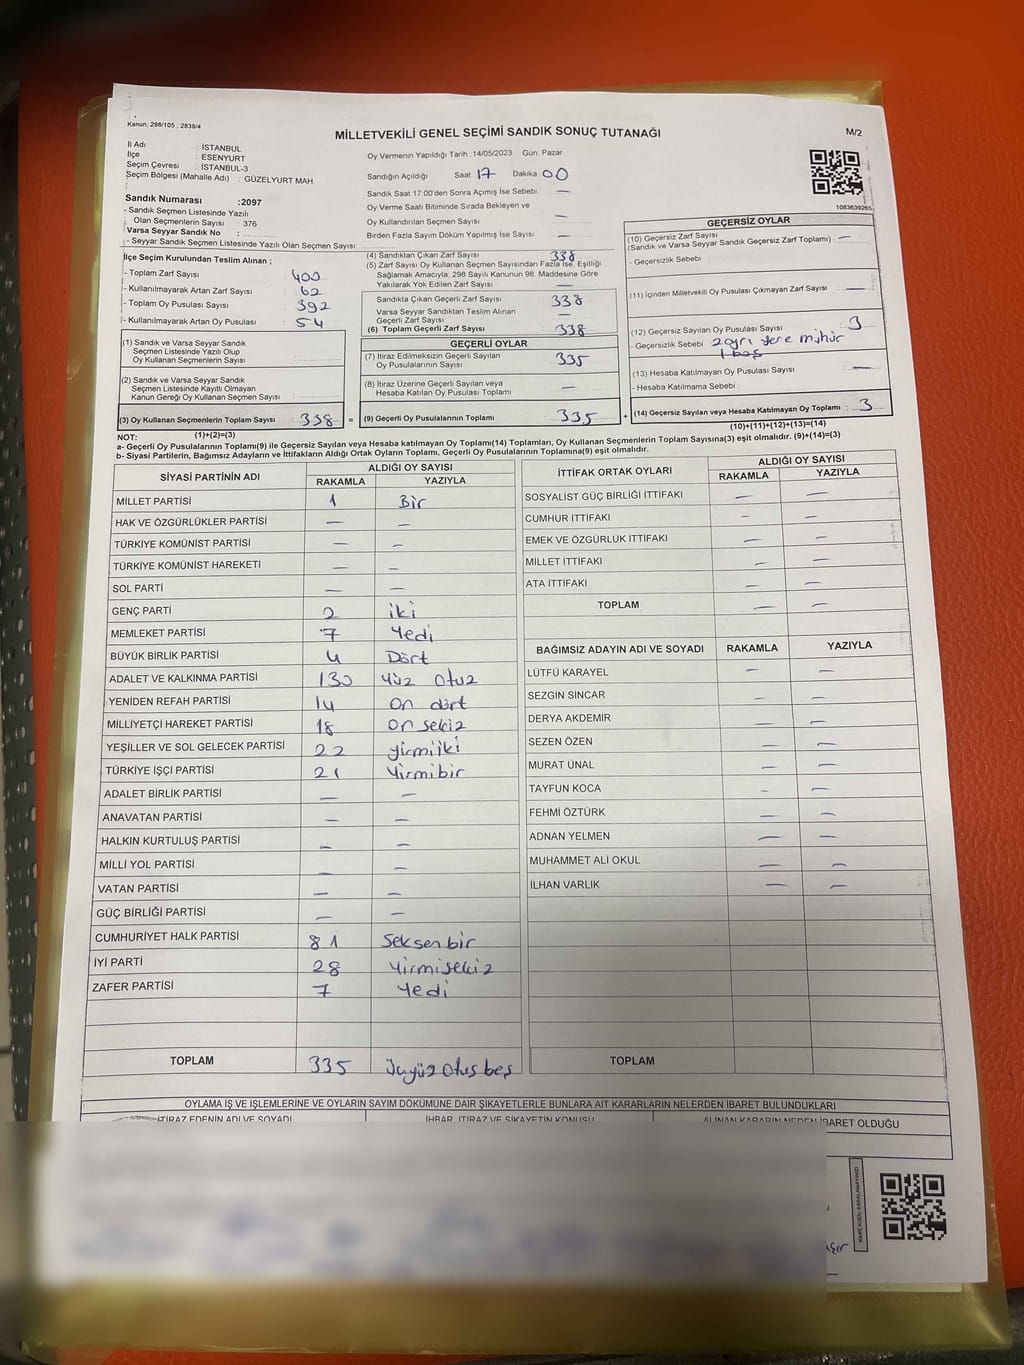 Kanun; 298/105 , 2839/4
MİLLETVEKİLİ GENEL SEÇİMİ SANDIK SONUÇ TUTANAĞI
M/2
İl Adı : İSTANBUL
İlçe : ESENYURT
Seçim Çevresi : İSTANBUL-3
Seçim Bölgesi (Mahalle Adı) : GÜZELYURT MAH.
Oy Vermenin Yapıldığı Tarih :14/05/2023 Gün: Pazar
Sandığın Açıldığı Saat 17 Dakika 00
Sandık Saat 17:00'den Sonra Açımış İse Sebebi : —
Oy Verme Saati Bitiminde Sırada Bekleyen ve
Oy Kullandırılan Seçmen Sayısı —
Birden Fazla Sayım Döküm Yapılmış İse Sayısı : —
1083639265
Sandık Numarası :2097
- Sandık Seçmen Listesinde Yazılı
Olan Seçmenlerin Sayısı : 376
Varsa Seyyar Sandık No :
- Seyyar Sandık Seçmen Listesinde Yazılı Olan Seçmen Sayısı:
İlçe Seçim Kurulundan Teslim Alınan ;
- Toplam Zarf Sayısı : 400
- Kullanılmayarak Artan Zarf Sayısı : 62
- Toplam Oy Pusulası Sayısı : 392
- Kullanılmayarak Artan Oy Pusulası : 54
(1) Sandık ve Varsa Seyyar Sandık
Seçmen Listesinde Yazılı Olup
Oy Kullanan Seçmenlerin Sayısı :
(2) Sandık ve Varsa Seyyar Sandık
Seçmen Listesinde Kayıtlı Olmayan
Kanun Gereği Oy Kullanan Seçmen Sayısı :
(3) Oy Kullanan Seçmenlerin Toplam Sayısı : 338 =
(1)+(2)=(3)
(4) Sandıktan Çıkan Zarf Sayısı : 338
(5) Zarf Sayısı Oy Kullanan Seçmen Sayısından Fazla İse, Eşitliği
Sağlamak Amacıyla, 298 Sayılı Kanunun 98. Maddesine Göre
Yakılarak Yok Edilen Zarf Sayısı : —
Sandıkta Çıkan Geçerli Zarf Sayısı : 338
Varsa Seyyar Sandıktan Teslim Alınan
Geçerli Zarf Sayısı : —
(6) Toplam Geçerli Zarf Sayısı : 338
GEÇERLİ OYLAR
(7) İtiraz Edilmeksizin Geçerli Sayılan
Oy Pusulalarının Toplamı : 335
(8) İtiraz Üzerine Geçerli Sayılan veya
Hesaba Katılan Oy Pusulası Toplamı : —
(9) Geçerli Oy Pusulalarının Toplamı : 335 +
GEÇERSİZ OYLAR
(10) Geçersiz Zarf Sayısı
(Sandık ve Varsa Seyyar Sandık Geçersiz Zarf Toplamı) : —
- Geçersizlik Sebebi
(11) İçinden Milletvekili Oy Pusulası Çıkmayan Zarf Sayısı : —
(12) Geçersiz Sayılan Oy Pusulası Sayısı : 3
- Geçersizlik Sebebi : 2 ayrı yere mühür
1 boş
(13) Hesaba Katılmayan Oy Pusulası Sayısı : —
- Hesaba Katılmama Sebebi :
(14) Geçersiz Sayılan veya Hesaba Katılmayan Oy Toplamı : 3
(10)+(11)+(12)+(13)=(14)
NOT:
a- Geçerli Oy Pusulalarının Toplamı(9) ile Geçersiz Sayılan veya Hesaba katılmayan Oy Toplamı(14) Toplamları, Oy Kullanan Seçmenlerin Toplam Sayısına(3) eşit olmalıdır. (9)+(14)=(3)
b- Siyasi Partilerin, Bağımsız Adayların ve İttifakların Aldığı Ortak Oyların Toplamı, Geçerli Oy Pusulalarının Toplamına(9) eşit olmalıdır.
SİYASİ PARTİNİN ADI ALDIĞI OY SAYISI
RAKAMLA YAZIYLA
MİLLET PARTİSİ 1 Bir
HAK VE ÖZGÜRLÜKLER PARTİSİ — —
TÜRKİYE KOMÜNİST PARTİSİ — —
TÜRKİYE KOMÜNİST HAREKETİ — —
SOL PARTİ — —
GENÇ PARTİ 2 iki
MEMLEKET PARTİSİ 7 Yedi
BÜYÜK BİRLİK PARTİSİ 4 Dört
ADALET VE KALKINMA PARTİSİ 130 Yüz otuz
YENİDEN REFAH PARTİSİ 14 On dört
MİLLİYETÇİ HAREKET PARTİSİ 18 On sekiz
YEŞİLLER VE SOL GELECEK PARTİSİ 22 yirmiiki
TÜRKİYE İŞÇİ PARTİSİ 21 Yirmibir
ADALET BİRLİK PARTİSİ — —
ANAVATAN PARTİSİ — —
HALKIN KURTULUŞ PARTİSİ — —
MİLLİ YOL PARTİSİ — —
VATAN PARTİSİ — —
GÜÇ BİRLİĞİ PARTİSİ — —
CUMHURİYET HALK PARTİSİ 81 Seksenbir
İYİ PARTİ 28 Yirmisekiz
ZAFER PARTİSİ 7 Yedi
TOPLAM 335 Üçyüz Otuz beş
İTTİFAK ORTAK OYLARI ALDIĞI OY SAYISI
RAKAMLA YAZIYLA
SOSYALİST GÜÇ BİRLİĞİ İTTİFAKI — —
CUMHUR İTTİFAKI — —
EMEK VE ÖZGÜRLÜK İTTİFAKI — —
MİLLET İTTİFAKI — —
ATA İTTİFAKI — —
TOPLAM — —
BAĞIMSIZ ADAYIN ADI VE SOYADI RAKAMLA YAZIYLA
LÜTFÜ KARAYEL — —
SEZGİN SİNCAR — —
DERYA AKDEMİR — —
SEZEN ÖZEN — —
MURAT ÜNAL — —
TAYFUN KOCA — —
FEHMİ ÖZTÜRK — —
ADNAN YELMEN — —
MUHAMMET ALİ OKUL — —
İLHAN VARLIK — —
TOPLAM
OYLAMA İŞ VE İŞLEMLERİNE VE OYLARIN SAYIM DÖKÜMÜNE DAİR ŞİKAYETLERLE BUNLARA AİT KARARLARIN NELERDEN İBARET BULUNDUKLARI
İTİRAZ EDENİN ADI VE SOYADI
İHBAR, İTİRAZ VE ŞİKAYETİN KONUSU
ALINAN KARARIN NEDEN İBARET OLDUĞU
KARE KODU KARALAMAYINIZ!